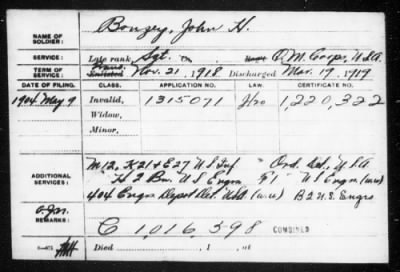 NAME OF SOLDIER: Bonzey, John H.
SERVICE: Late rank, Sgt. Q. M. Corps, U.S.A.
TERM OF SERVICE: Enlisted Nov. 21, 1918 Discharged Mar. 17, 1919
DATE OF FILING. CLASS. APPLICATION NO. LAW. CERTIFICATE NO.
1904 May 9 Invalid, 1315071 1,220,322
Widow,
Minor,
M 12, K 21 & E 27 U S Inf Ord. Det. U.S.A
ADDITIONAL SERVICES: H 2 Bn. U S Engrs. U S Engrs.
404 Engrs Depot Det. USA B 2 U.S. Engrs
REMARKS: C 1,016,598 COMBINED
Died , 1 , at